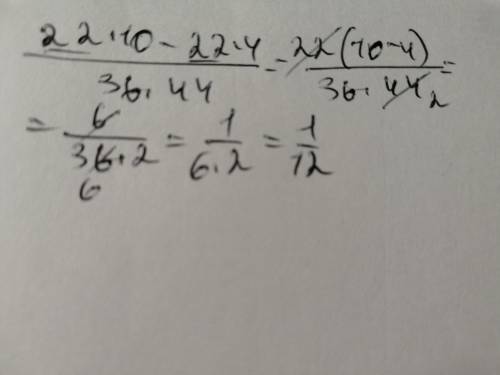 (22·10 - 22·4)/(36·44) = 22(10-4)/(36·44) 2 =
= 6/(36·2) 6 = 1/(6·2) = 1/12